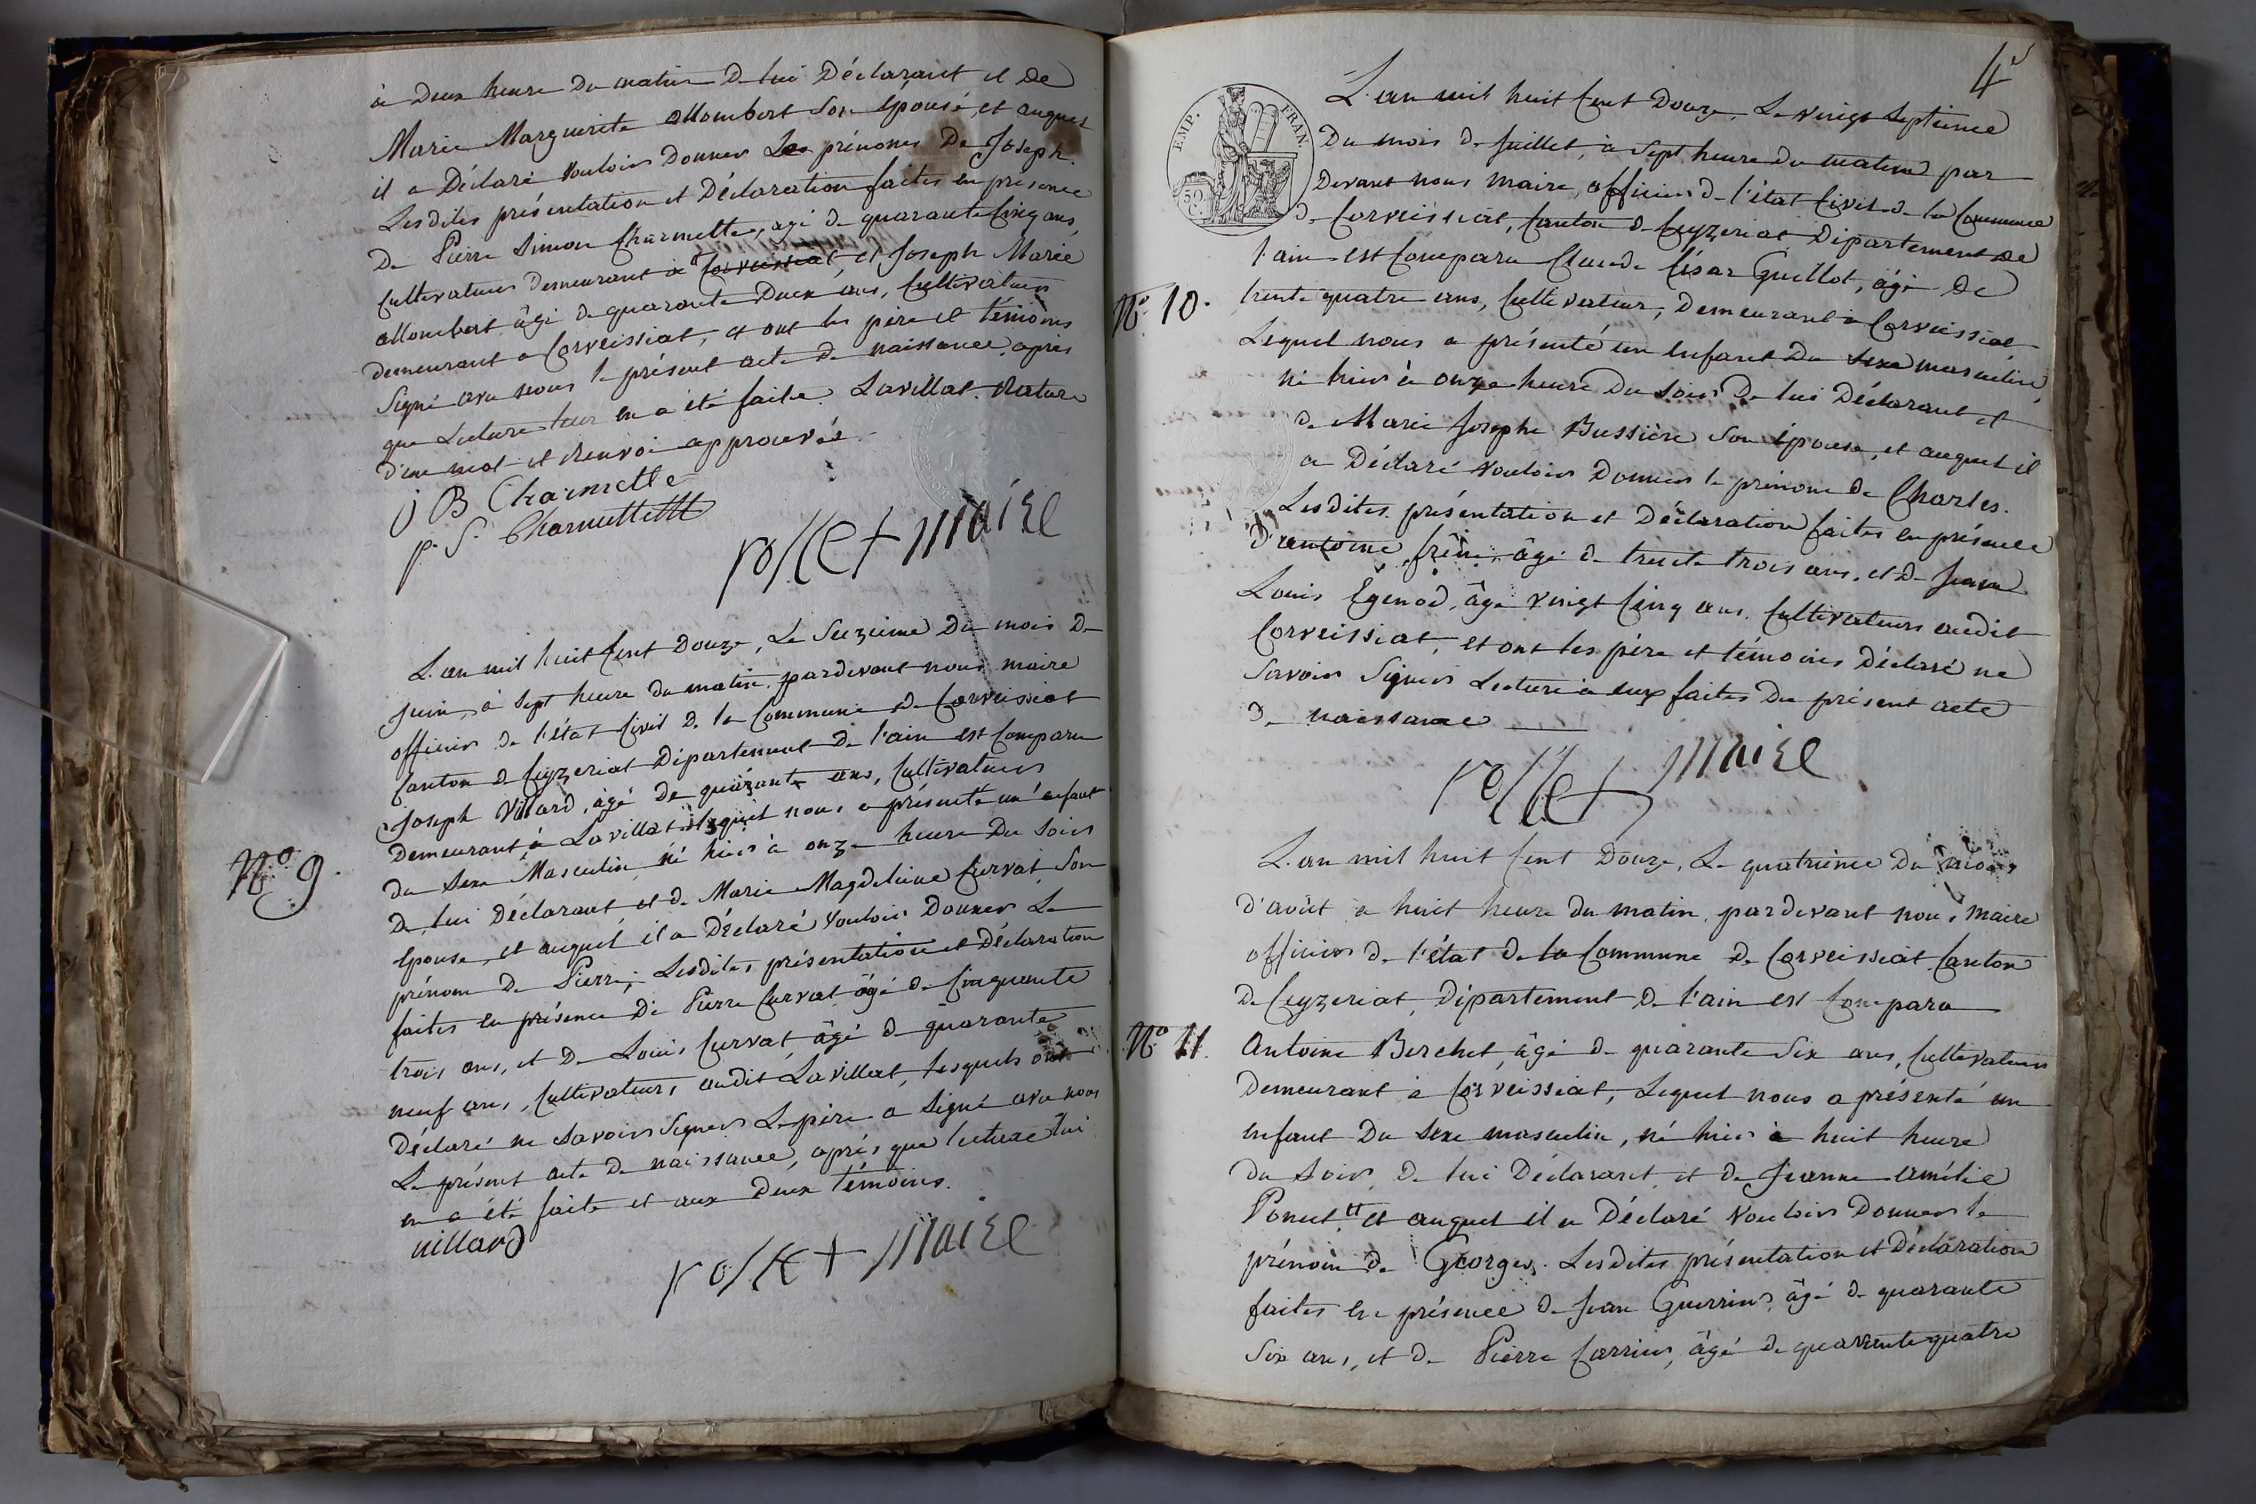 à Deux heure Du matin D. lui Déclarant et De
Marie Marguerite Mombert Son épouse, et auquel
il a Déclaré vouloir Donner Les prénoms De Joseph.
Lesdites présentation et Déclaration faites en présence
De Pierre Simon Charnette, agé de quarante Cinq ans,
Cultivateur demeurant à Corveissiat, et Joseph Marie
Mombert âgé de quarante Deux ans, Cultivateur
demeurant a Corveissiat, et ont les père et témoins
Signé avec nous le présent acte de naissance, après
que Lecture leur en a été faite. Lavillat. Rature
d'un mot et Renvoi approuvés.
J B Charnette
p. S. Charnette
rosset maire
L'an mil huit Cent Douze, Le Seizieme Du mois De
Juin, à Sept heure du matin, pardevant nous maire
officier de l'état Civil de la Commune de Corveissiat
Canton de Ceyzeriat Département de l'ain est Comparu
Joseph Villard, âgé de quarante ans, Cultivateur
Demeurant à Lavillat, lequel nous a présenté un enfant
du Sexe Masculin, né hier à onze heure Du Soir
De lui Déclarant et de Marie Magdeleine Curvat, Son
Epouse, et auquel il a Déclaré Vouloir Donner Le
prénom De Pierre; Lesdites présentation et Déclaration
faites en présence De Pierre Curvat âgé de Cinquante
trois ans, et De Louis Curvat, âgé de quarante
neuf ans, Cultivateurs audit Lavillat, lesquels ont
Déclaré ne Savoir Signer Le père a Signé avec nous
Le présent acte De naissance, après que lecture lui
en a été faite et aux Deux témoins.
Nº 9.
villard
rosset maire
4
EMP. FRAN.
50
L'an mil huit Cent Douze, Le vingt Septieme
Du mois de Juillet, à Sept heure du matin par
Devant nous Maire, officier de l'état Civil de la Commune
de Corveissiat, Canton de Ceyzeriat, Département de
l'ain est Comparu Claude César Guillot, âgé De
Nº 10.
trente quatre ans, Cultivateur, Demeurant à Corveissiat
Lequel nous a présenté un Enfant Du Sexe masculin,
né hier à onze heure Du Soir De lui Déclarant et
de Marie Josephe Bussière Son épouse, et auquel il
a Déclaré vouloir Donner le prénom de Charles.
Lesdites présentation et Déclaration faites en présence
D'antoine frène, âgé de trente trois ans, et De Jean
Louis Egenod, âgé vingt Cinq ans Cultivateurs audit
Corveissiat, et ont les père et témoins Déclaré ne
Savoir Signer Lecture à eux faites Du présent acte
De naissance
rosset maire
L'an mil huit Cent Douze, Le quatrième Du mois
d'août à huit heure du matin, pardevant nous maire
officier de l'état de la Commune de Corveissiat Canton
De Ceyzeriat, Département de l'ain est Comparu
Nº 11.
Antoine Berchet, âgé de quarante Six ans, Cultivateur
Demeurant à Corveissiat, Lequel nous a présenté un
enfant Du Sexe masculin, né hier à huit heure
du Soir, De lui Déclarant, et de Jeanne amélie
Poncet et auquel il a Déclaré vouloir Donner le
prénom de Georges. Lesdites présentation et Déclaration
faites en présence de Jean Guerrin, âgé de quarante
Six ans, et de Pierre Carrier, âgé de quarante quatre